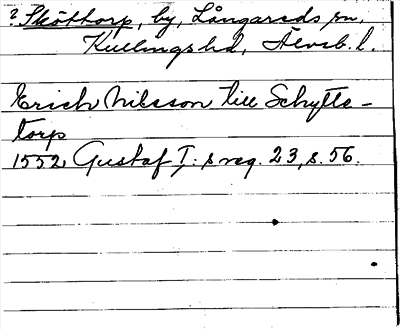 ? Sköttorp, by, Långareds sn,
Kullings hd, Älvsb. l.
Erich Nilsson till Schytte-
torp
1552, Gustaf I: s reg. 23, s. 56.